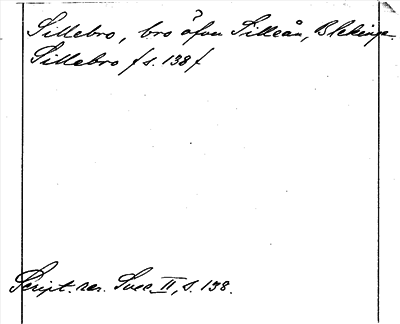 Sillebro, bro öfver Silleån, Blekinge.
Sillebro /s. 138/
Script. rer. Suec. II, s. 138.